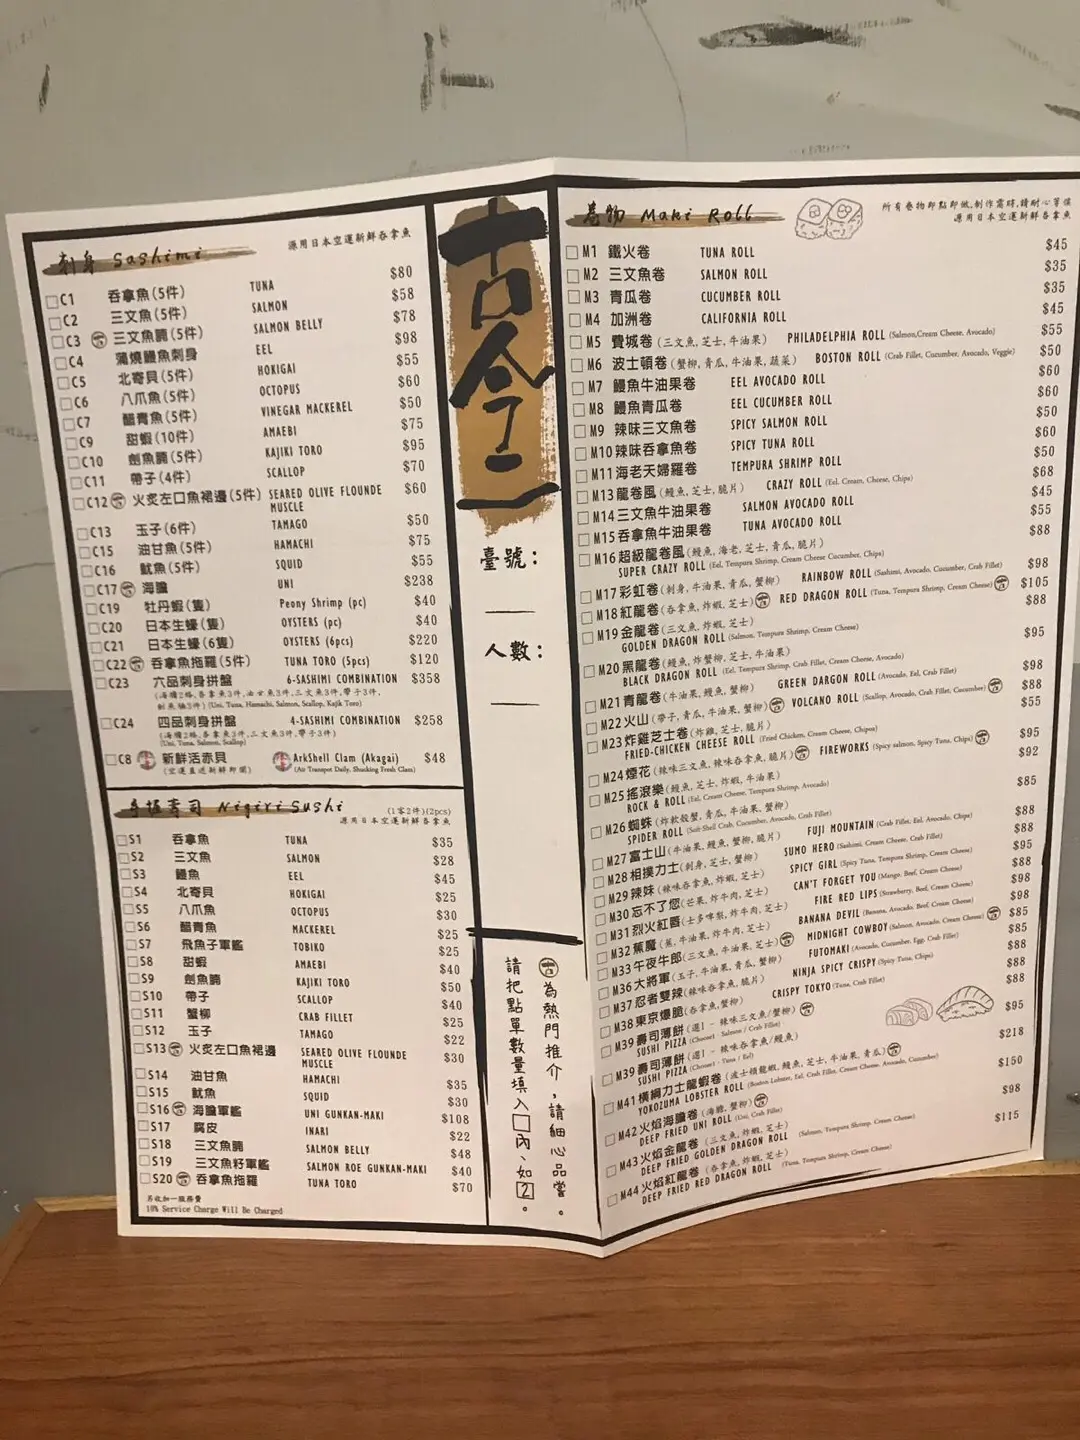 刺身 Sashimi
源用日本空運新鮮吞拿魚
C1 吞拿魚(5件) TUNA $80
C2 三文魚(5件) SALMON $58
C3 三文魚腩(5件) SALMON BELLY $78
C4 蒲燒鰻魚刺身 EEL $98
C5 北寄貝(5件) HOKIGAI $55
C6 八爪魚(5件) OCTOPUS $60
C7 醋青魚(5件) VINEGAR MACKEREL $50
C9 甜蝦(10件) AMAEBI $75
C10 劍魚腩(5件) KAJIKI TORO $95
C11 帶子(4件) SCALLOP $70
C12 火炙左口魚裙邊(5件) SEARED OLIVE FLOUNDE $60
MUSCLE
C13 玉子(6件) TAMAGO $50
C15 油甘魚(5件) HAMACHI $75
C16 魷魚(5件) SQUID $55
C17 海膽 UNI $238
C19 牡丹蝦(隻) Peony Shrimp (pc) $40
C20 日本生蠔(隻) OYSTERS (pc) $40
C21 日本生蠔(6隻) OYSTERS (6pcs) $220
C22 吞拿魚拖羅(5件) TUNA TORO (5pcs) $120
C23 六品刺身拼盤 6-SASHIMI COMBINATION $358
(Uni, Tuna, Hamachi, Salmon, Scallop, Kajik Toro)
C24 四品刺身拼盤 4-SASHIMI COMBINATION $258
(Uni, Tuna, Salmon, Scallop)
C8 新鮮活赤貝 ArkShell Clam (Akagai) $48
(空運直送新鮮即開) (Air Transpot Daily, Shucking Fresh Clam)
手握壽司 Nigiri Sushi
(1客2件)(2pcs)
源用日本空運新鮮吞拿魚
S1 吞拿魚 TUNA $35
S2 三文魚 SALMON $28
S3 鰻魚 EEL $45
S4 北寄貝 HOKIGAI $25
S5 八爪魚 OCTOPUS $30
S6 醋青魚 MACKEREL $25
S7 飛魚子軍艦 TOBIKO $25
S8 甜蝦 AMAEBI $40
S9 劍魚腩 KAJIKI TORO $50
S10 帶子 SCALLOP $40
S11 蟹柳 CRAB FILLET $25
S12 玉子 TAMAGO $22
S13 火炙左口魚裙邊 SEARED OLIVE FLOUNDE $30
MUSCLE
S14 油甘魚 HAMACHI $35
S15 魷魚 SQUID $30
S16 海膽軍艦 UNI GUNKAN-MAKI $108
S17 腐皮 INARI $22
S18 三文魚腩 SALMON BELLY $48
S19 三文魚籽軍艦 SALMON ROE GUNKAN-MAKI $40
S20 吞拿魚拖羅 TUNA TORO $70
另收加一服務費
10% Service Charge Will Be Charged
古今二
臺號:
人數:
為熱門推介,請細心品嘗。
請把點單數量填入□內、如2。
卷物 Maki Roll
所有卷物即點即做,制作需時,請耐心等候
源用日本空運新鮮吞拿魚
M1 鐵火卷 TUNA ROLL $45
M2 三文魚卷 SALMON ROLL $35
M3 青瓜卷 CUCUMBER ROLL $35
M4 加洲卷 CALIFORNIA ROLL $45
M5 費城卷(三文魚,芝士,牛油果) PHILADELPHIA ROLL (Salmon,Cream Cheese, Avocado) $55
M6 波士頓卷(蟹柳,青瓜,牛油果,蔬菜) BOSTON ROLL (Crab Fillet, Cucumber, Avocado, Veggie) $50
M7 鰻魚牛油果卷 EEL AVOCADO ROLL $60
M8 鰻魚青瓜卷 EEL CUCUMBER ROLL $60
M9 辣味三文魚卷 SPICY SALMON ROLL $50
M10 辣味吞拿魚卷 SPICY TUNA ROLL $60
M11 海老天婦羅卷 TEMPURA SHRIMP ROLL $50
M13 龍卷風(鰻魚,芝士,脆片) CRAZY ROLL (Eel, Cream Cheese, Chips) $68
M14 三文魚牛油果卷 SALMON AVOCADO ROLL $45
M15 吞拿魚牛油果卷 TUNA AVOCADO ROLL $55
M16 超級龍卷風(鰻魚,海老,芝士,青瓜,脆片) $88
SUPER CRAZY ROLL (Eel, Tempura Shrimp, Cream Cheese Cucumber, Chips)
M17 彩虹卷(刺身,牛油果,青瓜,蟹柳) RAINBOW ROLL (Sashimi, Avocado, Cucumber, Crab Fillet) $98
M18 紅龍卷(吞拿魚,炸蝦,芝士) RED DRAGON ROLL (Tuna, Tempura Shrimp, Cream Cheese) $105
M19 金龍卷(三文魚,炸蝦,芝士) $88
GOLDEN DRAGON ROLL (Salmon, Tempura Shrimp, Cream Cheese)
M20 黑龍卷(鰻魚,炸蟹柳,芝士,牛油果) $95
BLACK DRAGON ROLL (Eel, Tempura Shrimp, Crab Fillet, Cream Cheese, Avocado)
M21 青龍卷(牛油果,鰻魚,蟹柳) GREEN DARGON ROLL (Avocado, Eel, Crab Fillet) $98
M22 火山(帶子,青瓜,牛油果,蟹柳) VOLCANO ROLL (Scallop, Avocado, Crab Fillet, Cucumber) $88
M23 炸雞芝士卷(炸雞,芝士,脆片) $55
FRIED-CHICKEN CHEESE ROLL (Fried Chicken, Cream Cheese, Chipes)
M24 煙花(辣味三文魚,辣味吞拿魚,脆片) FIREWORKS (Spicy salmon, Spicy Tuna, Chips) $95
M25 搖滾樂(鰻魚,芝士,炸蝦,牛油果) $92
ROCK & ROLL (Eel, Cream Cheese, Tempura Shrimp, Avocado)
M26 蜘蛛(炸軟殼蟹,青瓜,牛油果,蟹柳) $85
SPIDER ROLL (Soft-Shell Crab, Cucumber, Avocado, Crab Fillet)
M27 富士山(牛油果,鰻魚,蟹柳,脆片) FUJI MOUNTAIN (Crab Fillet, Eel, Avocado, Chips) $88
M28 相撲力士(刺身,芝士,蟹柳) SUMO HERO (Sashimi, Cream Cheese, Crab Fillet) $88
M29 辣妹(辣味吞拿魚,炸蝦,芝士) SPICY GIRL (Spicy Tuna, Tempura Shrimp, Cream Cheese) $95
M30 忘不了您(芒果,炸牛肉,芝士) CAN'T FORGET YOU (Mango, Beef, Cream Cheese) $88
M31 烈火紅唇(士多啤梨,炸牛肉,芝士) FIRE RED LIPS (Strawberry, Beef, Cream Cheese) $98
M32 蕉魔(蕉,牛油果,炸牛肉,芝士) BANANA DEVIL (Banana, Avocado, Beef, Cream Cheese) $98
M33 午夜牛郎(三文魚,牛油果,芝士) MIDNIGHT COWBOY (Salmon, Avocado, Cream Cheese) $85
M36 大將軍(玉子,牛油果,青瓜,蟹柳) FUTOMAKI (Avocado, Cucumber, Egg, Crab Fillet) $88
M37 忍者雙辣(辣味吞拿魚,脆片) NINJA SPICY CRISPY (Spicy Tuna, Chips) $88
M38 東京爆脆(吞拿魚,蟹柳) CRISPY TOKYO (Tuna, Crab Fillet) $88
M39 壽司薄餅(選1 - 辣味三文魚/蟹柳) $95
SUSHI PIZZA (Choose1 - Salmon / Crab Fillet)
M39 壽司薄餅(選1 - 辣味吞拿魚/鰻魚)
SUSHI PIZZA (Choose1 - Tuna / Eel)
M41 橫綱力士龍蝦卷(波士頓龍蝦,鰻魚,芝士,牛油果,青瓜) $218
YOKOZUMA LOBSTER ROLL (Boston Lobster, Eel, Crab Fillet, Cream Cheese, Avocado, Cucumber)
M42 火焰海膽卷(海膽,蟹柳) $150
DEEP FRIED UNI ROLL (Uni, Crab Fillet)
M43 火焰金龍卷(三文魚,炸蝦,芝士) $98
DEEP FRIED GOLDEN DRAGON ROLL (Salmon, Tempura Shrimp, Cream Cheese)
M44 火焰紅龍卷(吞拿魚,炸蝦,芝士) $115
DEEP FRIED RED DRAGON ROLL (Tuna, Tempura Shrimp, Cream Cheese)